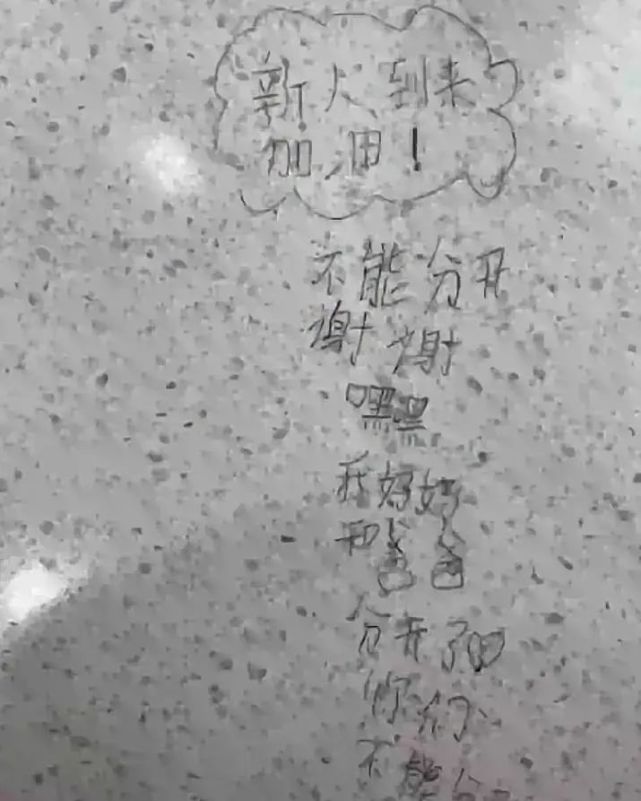 新人到来
加油！
不能分开
谢谢
嘿嘿
我妈妈
和爸爸
分开了
你们
不能分